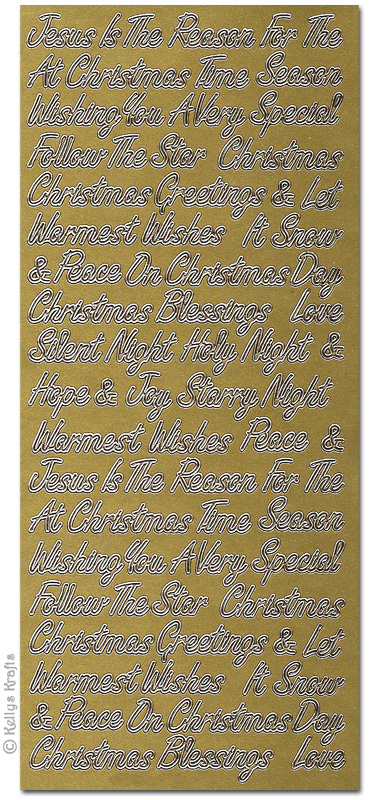 Jesus Is The Reason For The
At Christmas Time Season
Wishing You A Very Special
Follow The Star Christmas
Christmas Greetings & Let
Warmest Wishes It Snow
& Peace On Christmas Day
Christmas Blessings Love
Silent Night Holy Night &
Hope & Joy Starry Night
Warmest Wishes Peace &
Jesus Is The Reason For The
At Christmas Time Season
Wishing You A Very Special
Follow The Star Christmas
Christmas Greetings & Let
Warmest Wishes It Snow
& Peace On Christmas Day
Christmas Blessings Love
© Kellys Krafts